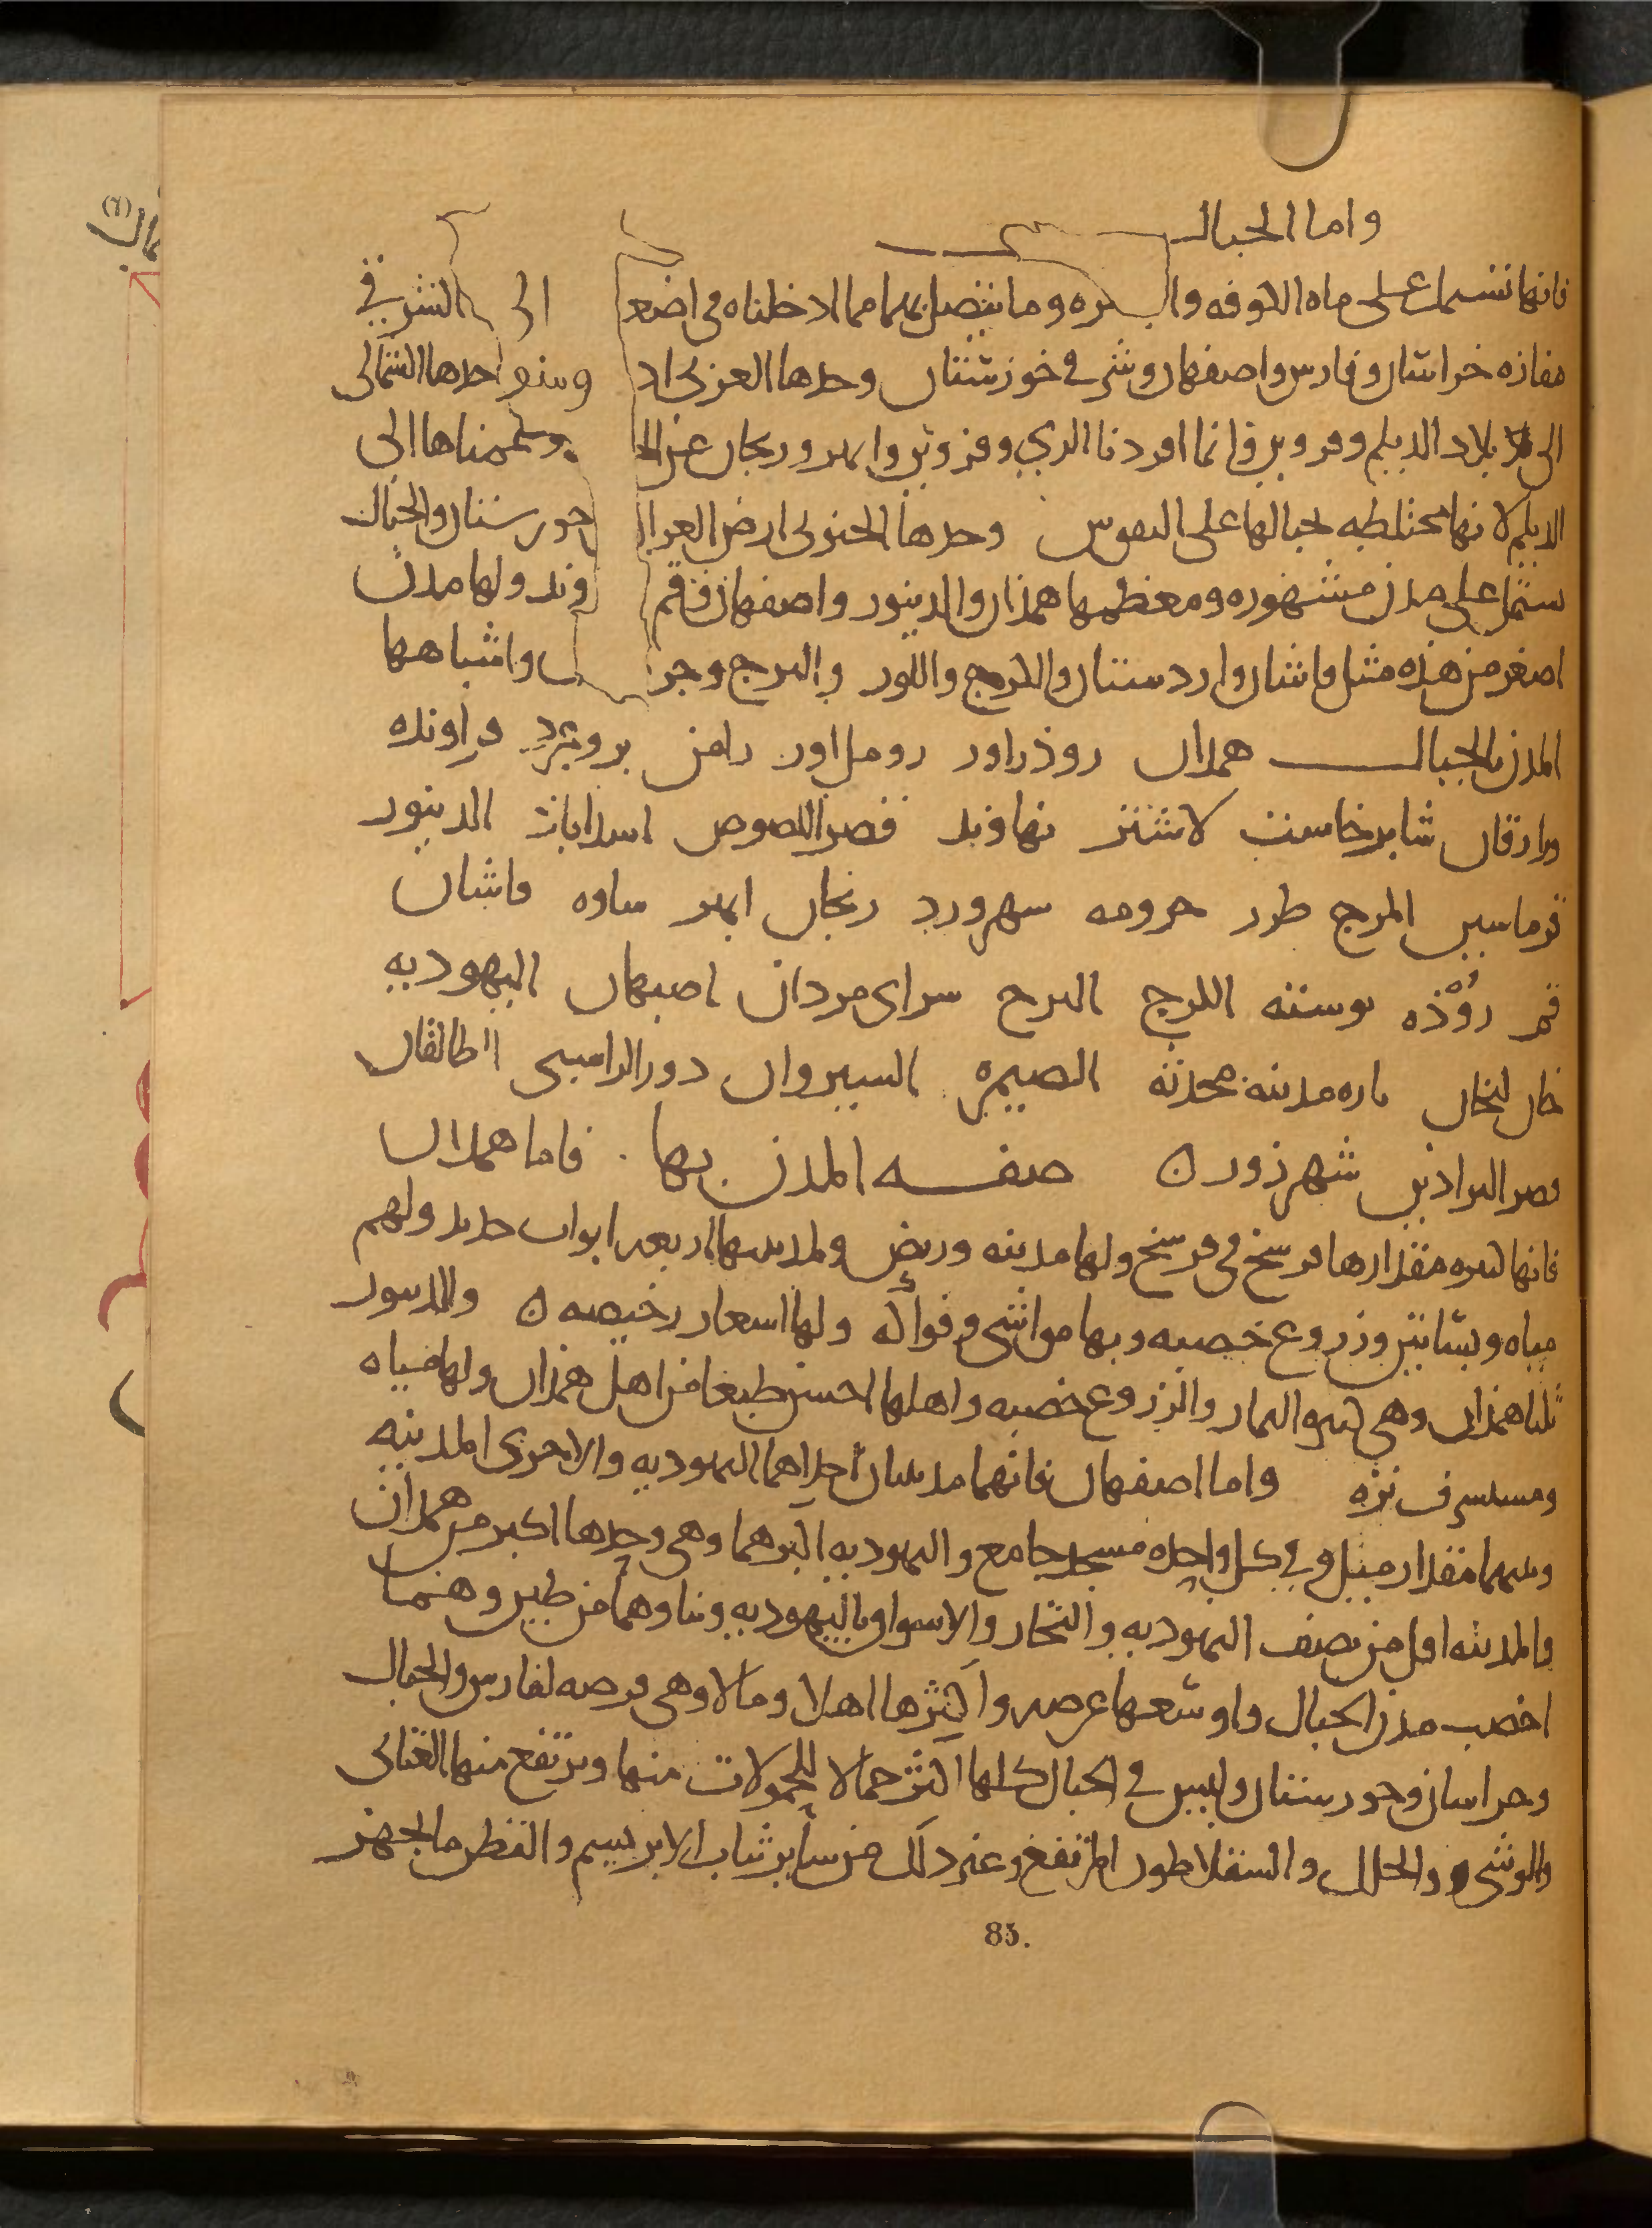 واما الجبال
فانها تشتمل على ماه الكوفه والبصره وما يتصل بهما مما ادخلناه في اضعا الى الشرقي
مفازه خراسان وفارس واصفهان وشرقي خوزستان وحدها الغربي اد وحدها الشمالى
الى بلاد الديلم وقزوين فانما افردنا الري وقزوين وابهر وزنجان عن الجـ وضممناها الى
الديلم لانها مختلطه بجبالها على التقويس وحدها الجنوبى ارض العرا خورستان والجبال
تشتمل على مدن مشهوره ومعظمها همذان والدينور واصفهان وقم وند ولها مدن
اصغر من هذه مثل قاشان واردستان والكرج واللور والبرج وجر واشباهها
المدن بالجبال همدان روذراور رامن بروجرد فراونده
شابرخاست لاشتر نهاوند قصر اللصوص اسداباذ الدينور
قرماسين المرج طرر حرومه سهرورد زنجان ابهر ساوه قاشان
قم روذه بوسته الكرج البرج سراى مردان اصبهان اليهوديه
خان لنجان باره مدينه محدثه الصيمره السيروان دور الراسبى الطالقان
قصر البراذين شهرزور ٥ صفه المدن بها . فاما همدان
فانها كبيره مقدارها فرسخ في فرسخ ولها مدينه وربض ولمدينتها اربعه ابواب حديد ولهم
مياه وبساتين وزروع خصبه وبها مواشى وفواكه ولها اسعار رخيصه ٥ والدينور
ثلثا همذان وهى كثيره الثمار والزروع خصبه واهلها احسن طبعا من اهل همذان ولها مياه
ومستشرف نزه واما اصفهان فانهما مدينتان احداهما اليهوديه والاخرى المدينه
وبينهما مقدار ميل وفي كل واحده مسجد جامع واليهوديه اكبرهما وهى وحدها اكبر من همدان
والمدينه اقل من نصف اليهوديه والتجار والاسواق باليهوديه وبناوهما من طين وهما
اخصب مدن الجبال واوسعها عرصه واكثرها اهلا ومالا وهى فرصه لفارس والجبال
وخراسان وخورستان وليس في الجبال كلها اكثر جمالا للحمولات منها ويرتفع منها العتابى
والوشى والحلل والسقلاطون المرتفع وغير ذلك من ساير ثياب الابريسم والقطن ما يجهز
85.